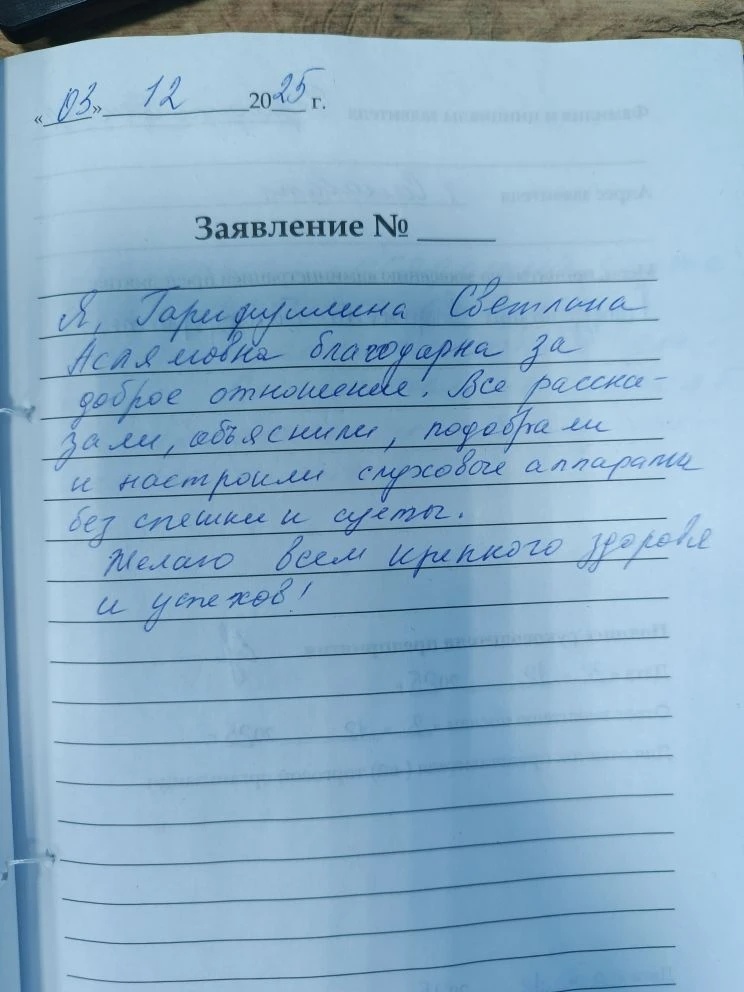 «03» 12 2025 г.
Заявление № ____
Я, Гарифуллина Светлана
Аслямовна благодарна за
доброе отношение. Все расска-
зали, объяснили, подобрали
и настроили слуховые аппараты
без спешки и суеты.
Желаю всем крепкого здоровья
и успехов!
Фамилия и инициалы заявителя
Адрес заявителя